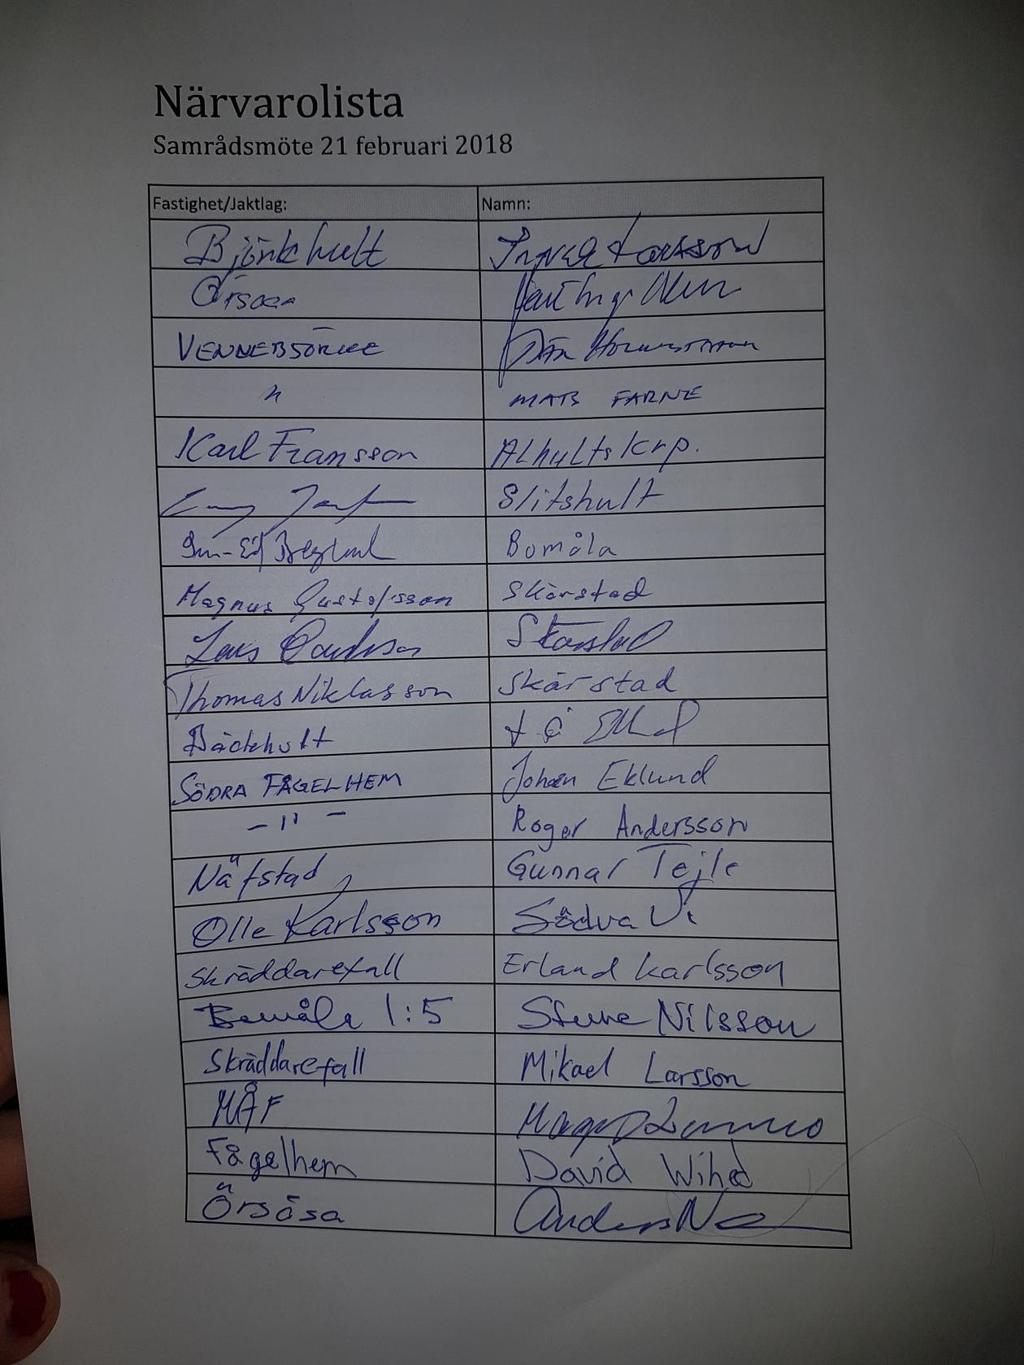 Närvarolista
Samrådsmöte 21 februari 2018
Fastighet/Jaktlag: Namn:
Björkhult Larsson
VENNEBJÖRKE
" MATS FARNE
Karl Fransson Alhults krp.
Slitshult
Bomåla
Magnus Gustafsson Skärstad
Lars Skärstad
Thomas Niklasson Skärstad
Bäckhult
SÖDRA FÅGELHEM Johan Eklund
- " - Roger Andersson
Näfstad Gunnar Tejle
Olle Karlsson Södra Vi
Skräddarefall Erland Karlsson
Bomåla 1:5 Sture Nilsson
Skräddarefall Mikael Larsson
MÅF
Fågelhem David Wihed
Örsåsa Anders